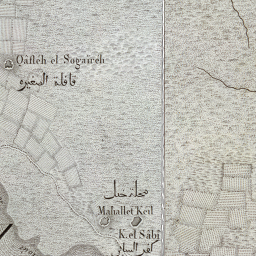 Qafleh el Sogaïreh
قافلة الصغيره
محلة كيل
Mahallet Keil
K. el Sâbî
كفر السابي